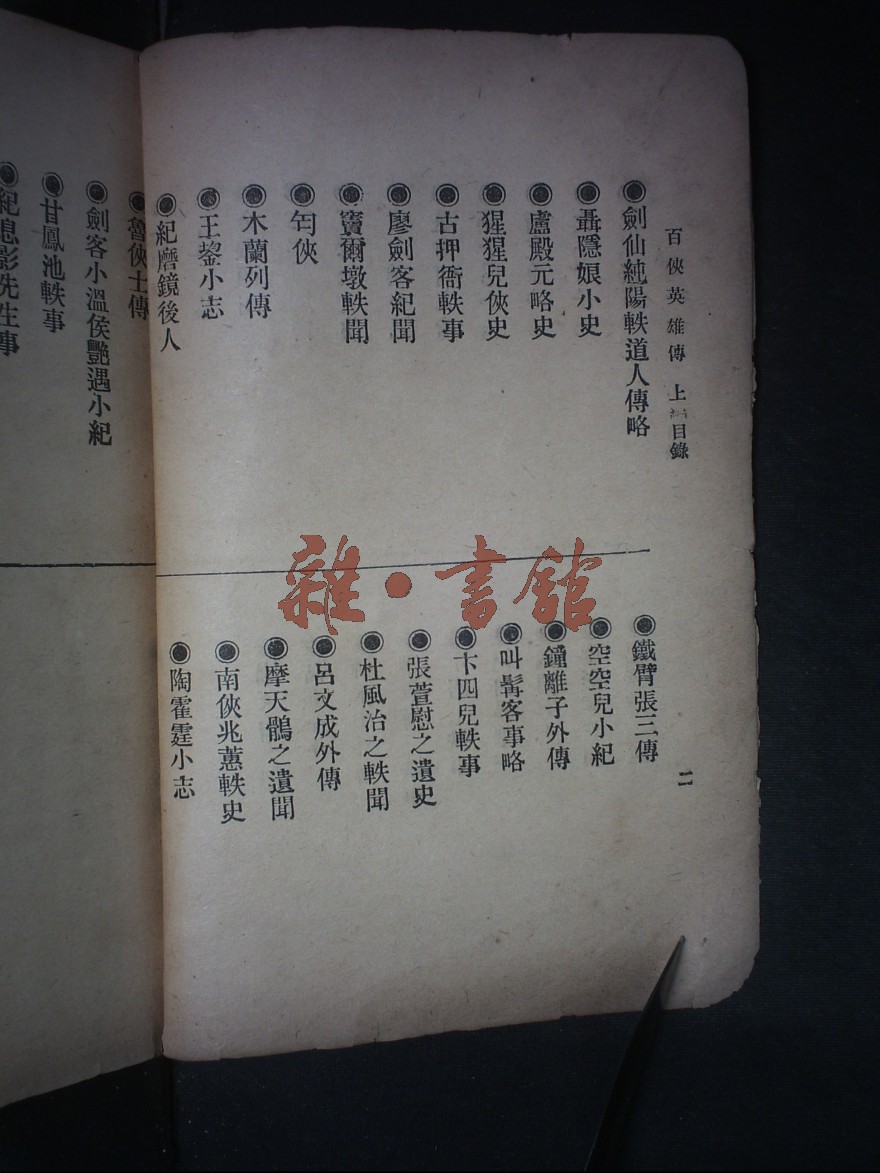 百俠英雄傳 上編目錄
二
劍仙純陽軼道人傳略
聶隱娘小史
盧殿元略史
猩猩兒俠史
古押衙軼事
廖劍客紀聞
竇爾墩軼聞
匄俠
木蘭列傳
王鋆小志
紀磨鏡後人
鐵臂張三傳
空空兒小紀
鐘離子外傳
叫髯客事略
卞四兒軼事
張萱慰之遺史
杜風治之軼聞
呂文成外傳
摩天鶻之遺聞
南俠兆蕙軼史
陶霍霆小志
魯俠士傳
劍客小溫侯艷遇小紀
甘鳳池軼事
紀息影先生事
雜·書館